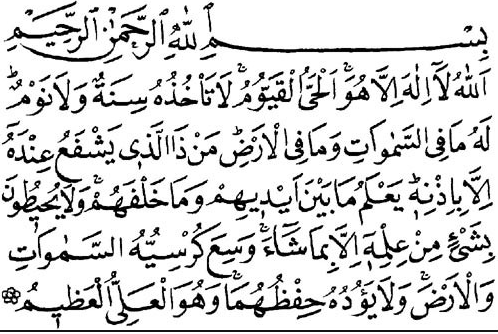 بِسْمِ اللّٰهِ الرَّحْمٰنِ الرَّحِيْمِ
اَللّٰهُ لَٓا اِلٰهَ اِلَّا هُوَۚ اَلْحَيُّ الْقَيُّومُۚ لَا تَأْخُذُهُ سِنَةٌ وَلَا نَوْمٌۜ
لَهُ مَا فِي السَّمٰوَاتِ وَمَا فِي الْاَرْضِۜ مَنْ ذَا الَّذ۪ي يَشْفَعُ عِنْدَهُٓ
اِلَّا بِاِذْنِه۪ۜ يَعْلَمُ مَا بَيْنَ اَيْد۪يهِمْ وَمَا خَلْفَهُمْۚ وَلَا يُح۪يطُونَ
بِشَيْءٍ مِنْ عِلْمِه۪ٓ اِلَّا بِمَا شَٓاءَۚ وَسِعَ كُرْسِيُّهُ السَّمٰوَاتِ
وَالْاَرْضَۚ وَلَا يَؤُ۫دُهُ حِفْظُهُمَاۚ وَهُوَ الْعَلِيُّ الْعَظ۪يمُ